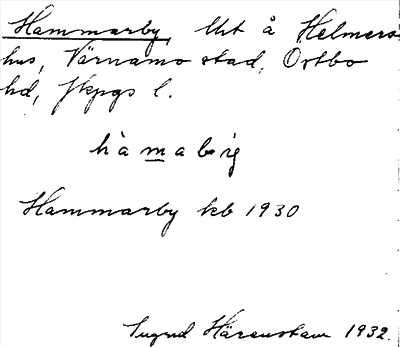 Hammarby Uht å Helmers-
hus, Värnamo stad, Östbo
hd, Jkpgs l.
hàmabụig
Hammarby kb 1930
Ingrid Härenstam 1932.